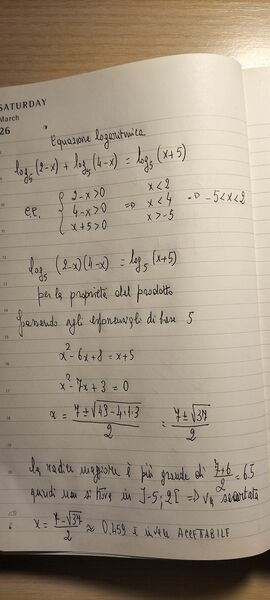 SATURDAY
March
26
Equazione logaritmica
log₅(2-x) + log₅(4-x) = log₅(x+5)
c.e. { 2-x>0 ⇒ x<2
4-x>0 ⇒ x<4 ⇒ -5<x<2
x+5>0 x>-5
log₅(2-x)(4-x) = log₅(x+5)
per la proprietà del prodotto
passando agli esponenziali di base 5
x² - 6x + 8 = x + 5
x² - 7x + 3 = 0
x = (7 ± √(49 - 4·1·3))/2 = (7 ± √37)/2
la radice maggiore è più grande di (7+6)/2 = 6.5
quindi non si trova in ]-5; 2[ ⇒ va scartata
x = (7-√37)/2 ≈ 0.459 è invece ACCETTABILE